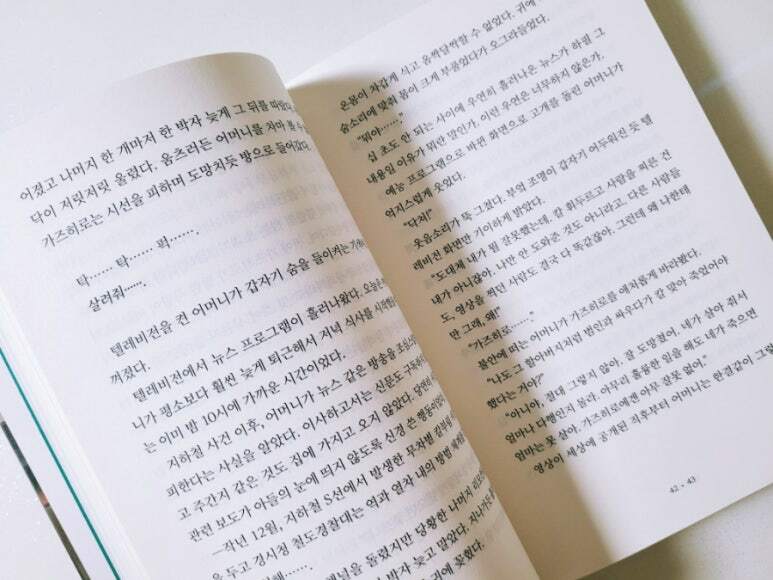 어졌고 나머지 한 개마저 한 박자 늦게 그 뒤를 따랐다.
닥이 저릿저릿 울렸다. 움츠러든 어머니를 차마 볼 수
가즈히로는 시선을 피하며 도망치듯 방으로 들어갔다.
탁…… 탁…… 퍽…….
살려줘…….
텔레비전을 켠 어머니가 갑자기 숨을 들이켜는
꺼졌다.
텔레비전에서 뉴스 프로그램이 흘러나왔다. 오늘은
니가 평소보다 훨씬 늦게 퇴근해서 저녁 식사를
는 이미 밤 10시에 가까운 시간이었다.
지하철 사건 이후, 어머니가 뉴스 같은 방송을
피한다는 사실을 알았다. 이사하고서는 신문도
고 주간지 같은 것도 집에 가지고 오지 않았다. 당연히
관련 보도가 아들의 눈에 띄지 않도록 신경 쓴
─작년 12월, 지하철 S선에서 발생한 무차별
을 두고 경시청 철도경찰대는 역과 열차 내의 방범
채널을 돌렸지만 당황한 나머지
박자 늦고 말았다.
귀에 꽂혔다.
온몸이 차갑게 식고 옴짝달싹할 수 없었다. 귀에
숨소리에 맞춰 몸이 크게 부풀었다가 오그라들었다.
“뭐야…….”
십 초도 안 되는 사이에 우연히 흘러나온 뉴스가 하필 그
내용일 이유가 뭐란 말인가. 이런 우연은 너무하지 않은가.
예능 프로그램으로 바뀐 화면으로 고개를 돌린 어머니가
억지스럽게 웃었다.
“닥쳐!”
웃음소리가 뚝 그쳤다. 부엌 조명이 갑자기 어두워진 듯 텔
레비전 화면만 기이하게 밝았다.
“도대체 내가 뭘 잘못했는데. 칼 휘두르고 사람을 찌른 건
내가 아니잖아. 나만 안 도와준 것도 아니라고. 다른 사람들
도, 영상을 찍던 사람도 결국 다 똑같잖아. 그런데 왜 나한테
만 그래, 왜!”
“가즈히로…….”
불안에 떠는 어머니가 가즈히로를 애처롭게 바라봤다.
“나도 그 할아버지처럼 범인과 싸우다가 칼 맞아 죽었어야
했다는 거야?”
“아니야, 절대 그렇지 않아. 잘 도망쳤어. 네가 살아 줘서
얼마나 다행인지 몰라. 아무리 훌륭한 일을 해도 네가 죽으면
엄마는 못 살아. 가즈히로에겐 아무 잘못 없어.”
영상이 세상에 공개된 직후부터 어머니는 한결같이 그렇
42 • 43